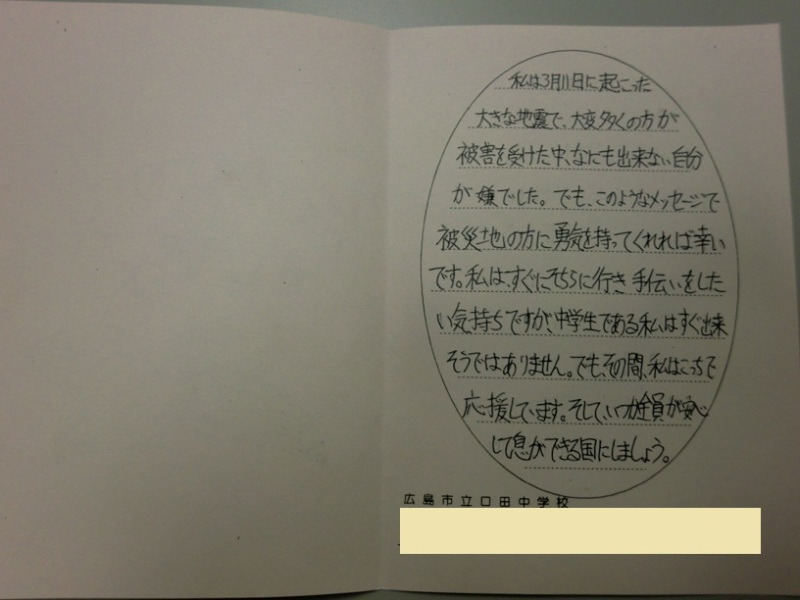 私は3月11日に起こった
大きな地震で、大変多くの方が
被害を受けた中、なにも出来ない自分
が嫌でした。でも、このようなメッセージで
被災地の方に勇気を持ってくれれば幸い
です。私は、すぐにそちらに行き手伝いをした
い気持ちですが、中学生である私はすぐ出来
そうではありません。でも、その間、私はこっちで
応援しています。そして、いつか全員が安心
して息ができる国にしましょう。
広島市立口田中学校